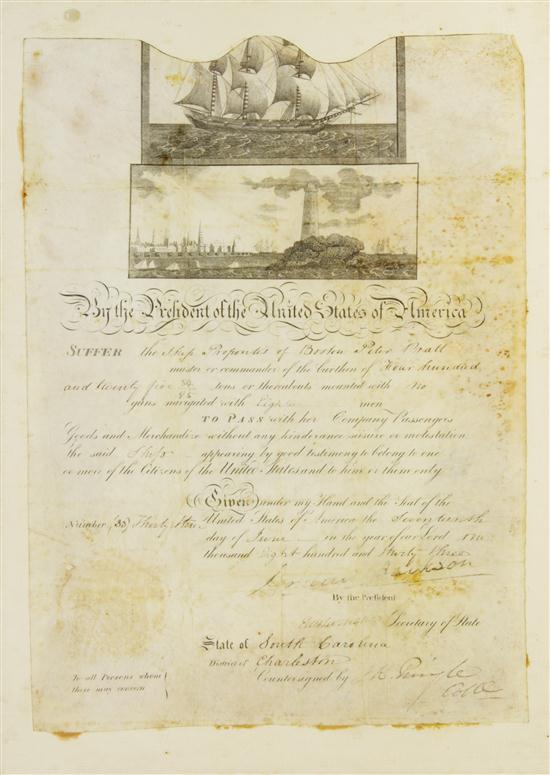 By the President of the United States of America
SUFFER the Ship of Boston Peter
master or commander of the burthen of Four hundred
and twenty five tons or thereabouts mounted with No
guns navigated with men
TO PASS with her Company Passengers
Goods and Merchandize without any hinderance seisure or molestation
the said Ship appearing by good testimony to belong to one
or more of the Citizens of the United States and to him or them only
Given under my Hand and the Seal of the
Number United States of America the
day of June in the year of our Lord One
thousand Eight hundred and thirty three
Jackson
By the President
Secretary of State
State of South Carolina
District of Charleston
To all Persons whom Countersigned by J R Pringle
these may concern